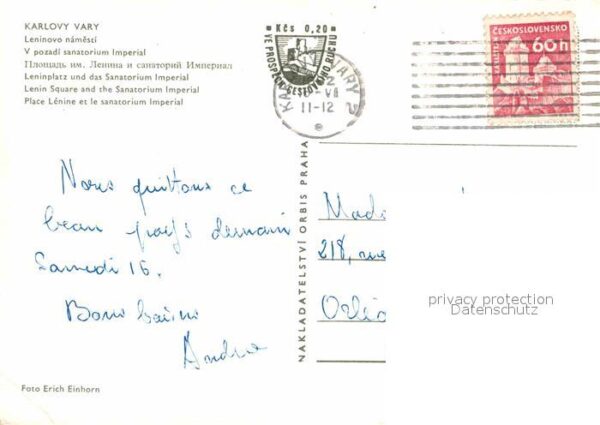 KARLOVY VARY
Leninovo náměstí
V pozadí sanatorium Imperial
Площадь им. Ленина и санаторий Империал
Leninplatz und das Sanatorium Imperial
Lenin Square and the Sanatorium Imperial
Place Lénine et le sanatorium Imperial
Kčs 0,20
VE PROSPĚCH CESTOVNÍHO RUCHU
KARLOVY VARY 2
VII
11-12
ČESKOSLOVENSKO
60 h
Nous quittons ce
beau pays demain
Samedi 16.
Bons baisers
Andrée
NAKLADATELSTVÍ ORBIS PRAHA
Mada
218, rue
privacy protection
Datenschutz
Foto Erich Einhorn